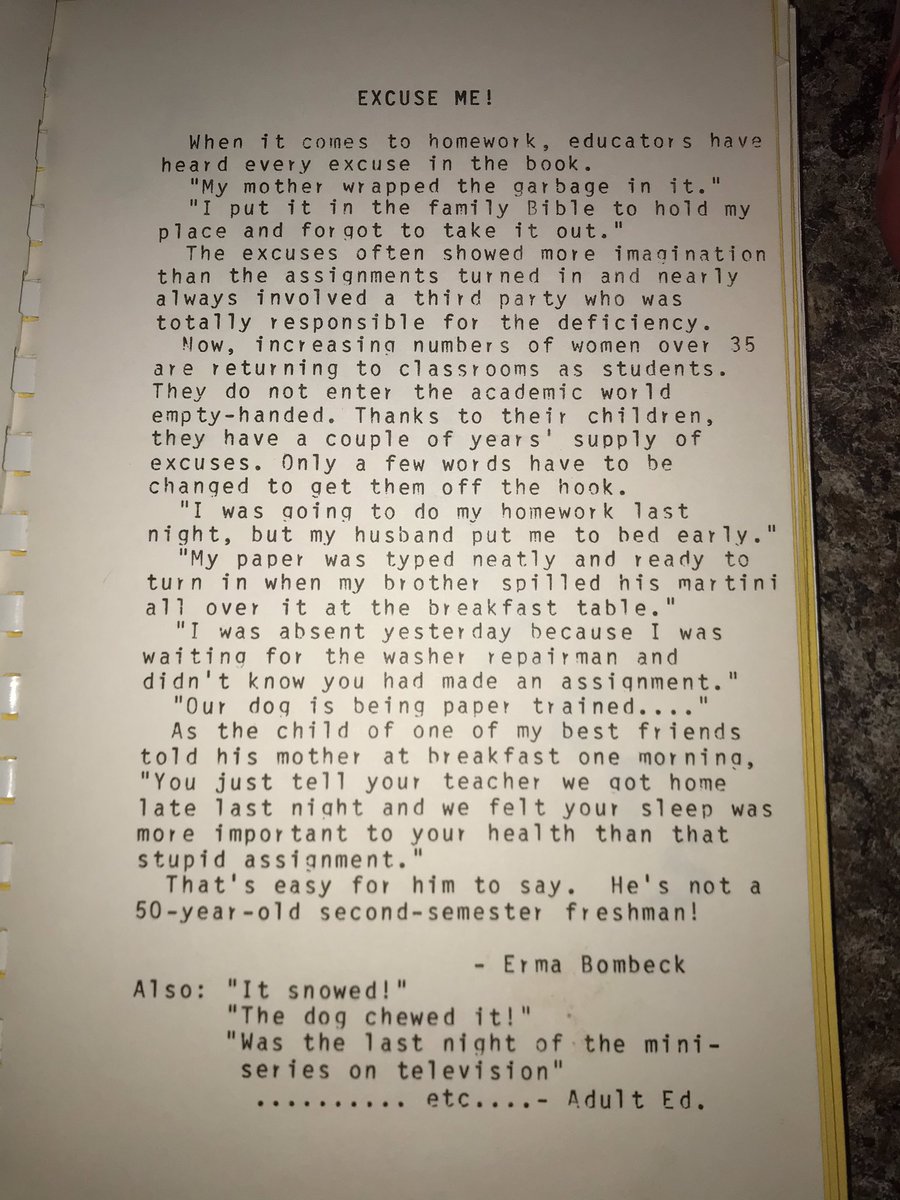 EXCUSE ME!
When it comes to homework, educators have
heard every excuse in the book.
"My mother wrapped the garbage in it."
"I put it in the family Bible to hold my
place and forgot to take it out."
The excuses often showed more imagination
than the assignments turned in and nearly
always involved a third party who was
totally responsible for the deficiency.
Now, increasing numbers of women over 35
are returning to classrooms as students.
They do not enter the academic world
empty-handed. Thanks to their children,
they have a couple of years' supply of
excuses. Only a few words have to be
changed to get them off the hook.
"I was going to do my homework last
night, but my husband put me to bed early."
"My paper was typed neatly and ready to
turn in when my brother spilled his martini
all over it at the breakfast table."
"I was absent yesterday because I was
waiting for the washer repairman and
didn't know you had made an assignment."
"Our dog is being paper trained...."
As the child of one of my best friends
told his mother at breakfast one morning,
"You just tell your teacher we got home
late last night and we felt your sleep was
more important to your health than that
stupid assignment."
That's easy for him to say. He's not a
50-year-old second-semester freshman!
- Erma Bombeck
Also: "It snowed!"
"The dog chewed it!"
"Was the last night of the mini-
series on television"
.......... etc....- Adult Ed.